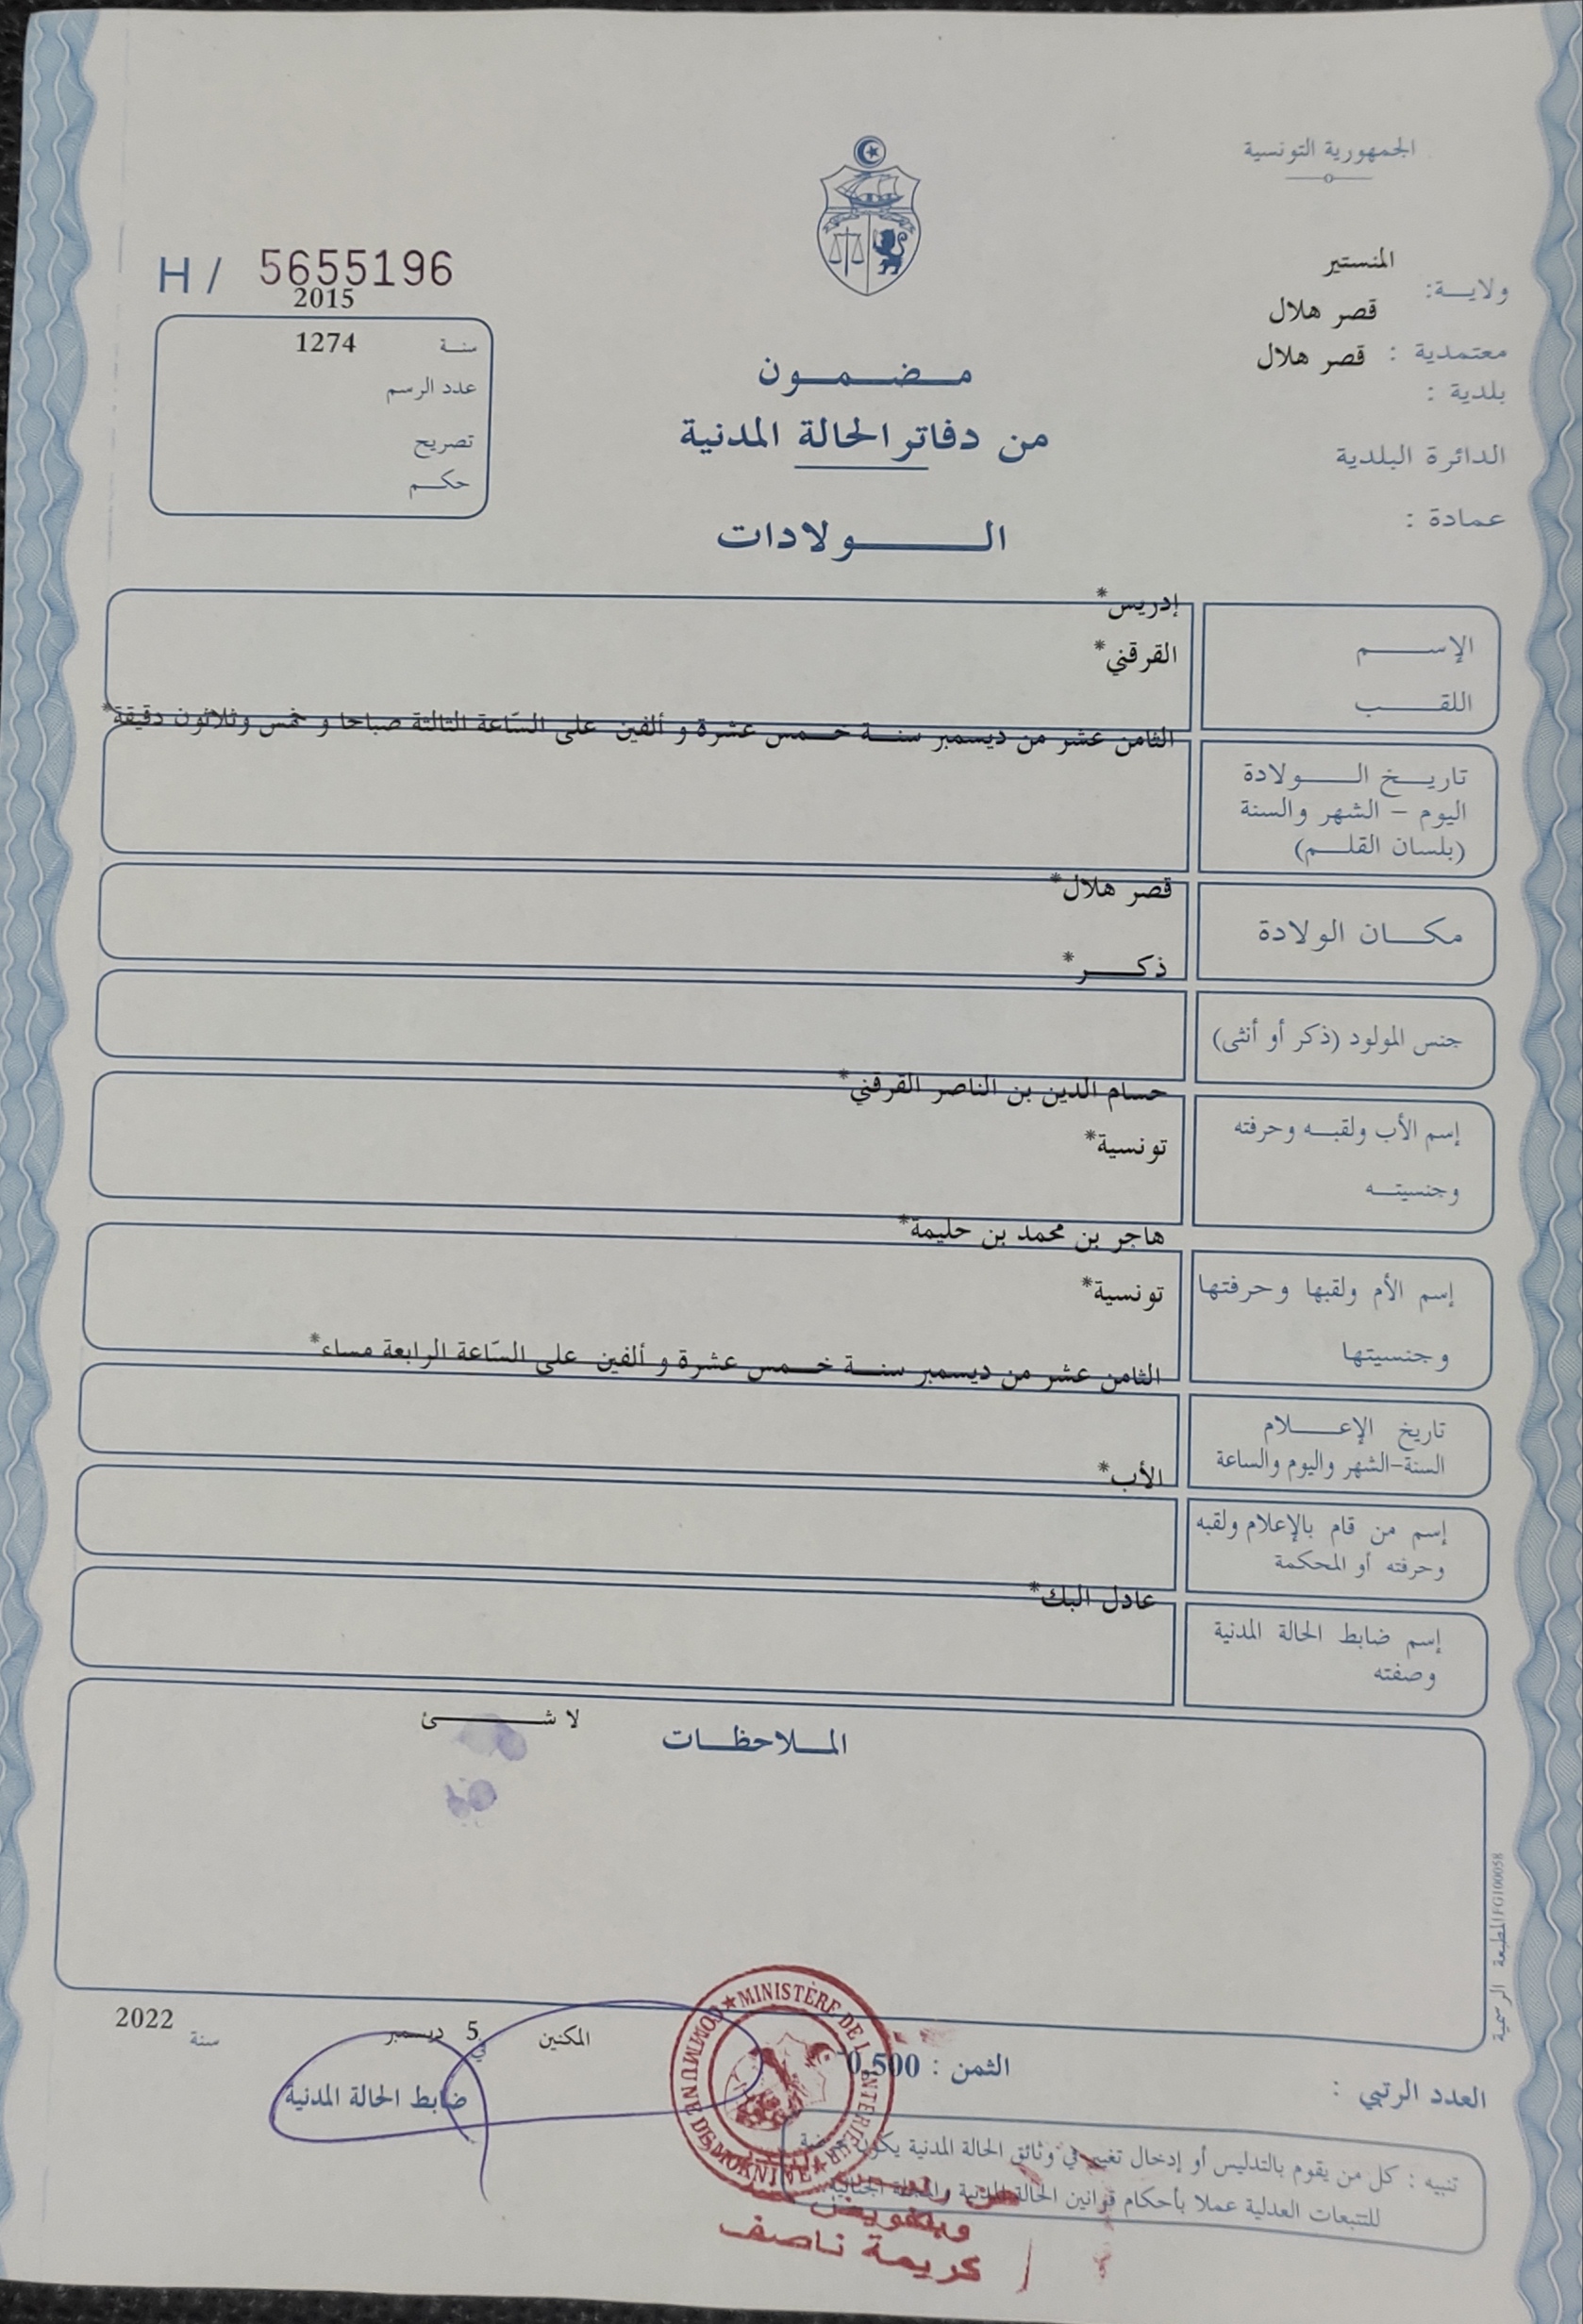 الجمهورية التونسية
المنستير
ولاية:
قصر هلال
معتمدية : قصر هلال
بلدية :
الدائرة البلدية
عمادة :
H / 5655196
2015
سنة 1274
عدد الرسم
تصريح
حكم
مضمون
من دفاتر الحالة المدنية
الولادات
إدريس*
الإسم
القرقني*
اللقب
الثامن عشر من ديسمبر سنة خمس عشرة و ألفين على السّاعة الثالثة صباحا و خمس وثلاثون دقيقة*
تاريخ الولادة
اليوم - الشهر والسنة
(بلسان القلم)
قصر هلال*
مكان الولادة
ذكر*
جنس المولود (ذكر أو أنثى)
حسام الدين بن الناصر القرقني*
إسم الأب ولقبه وحرفته
تونسية*
وجنسيته
هاجر بن محمد بن حليمة*
إسم الأم ولقبها وحرفتها
تونسية*
وجنسيتها
الثامن عشر من ديسمبر سنة خمس عشرة و ألفين على السّاعة الرابعة مساء*
تاريخ الإعلام
السنة-الشهر واليوم والساعة
الأب*
إسم من قام بالإعلام ولقبه
وحرفته أو المحكمة
عادل البك*
إسم ضابط الحالة المدنية
وصفته
لا شئ
الملاحظات
المطبعة الرسمية IFG100058
المكنين في 5 ديسمبر سنة 2022
ضابط الحالة المدنية
الثمن : 0,500
العدد الرتبي :
تنبيه : كل من يقوم بالتدليس أو إدخال تغيير في وثائق الحالة المدنية يكون عرضة
للتتبعات العدلية عملا بأحكام قوانين الحالة المدنية والمجلة الجنائية.
MINISTÈRE DE L'INTERIEUR ★ COMMUNE DE MOKNINE ★
وبتفويض
كريمة ناصف